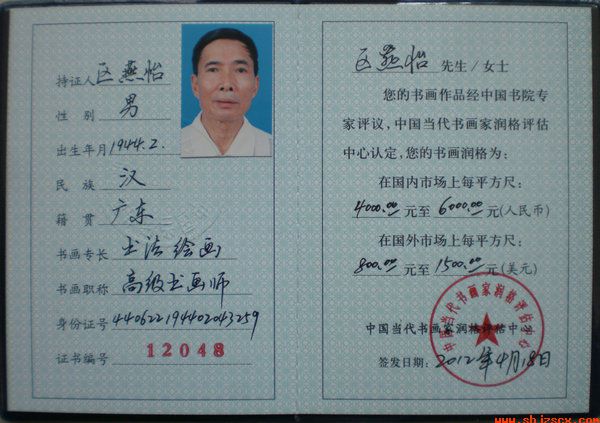 持证人 区燕怡
性别 男
出生年月 1944.2.
民族 汉
籍贯 广东
书画专长 书法绘画
书画职称 高级书画师
身份证号 440622194402043259
证书编号 12048
区燕怡 先生/女士
您的书画作品经中国书院专
家评议,中国当代书画家润格评估
中心认定,您的书画润格为:
在国内市场上每平方尺:
4000.00 元至 6000.00 元(人民币)
在国外市场上每平方尺:
800.00 元至 1500.00 元(美元)
中国当代书画家润格评估中心
签发日期: 2012年4月18日
中国当代书画家润格评估中心
www.shjzscx.com